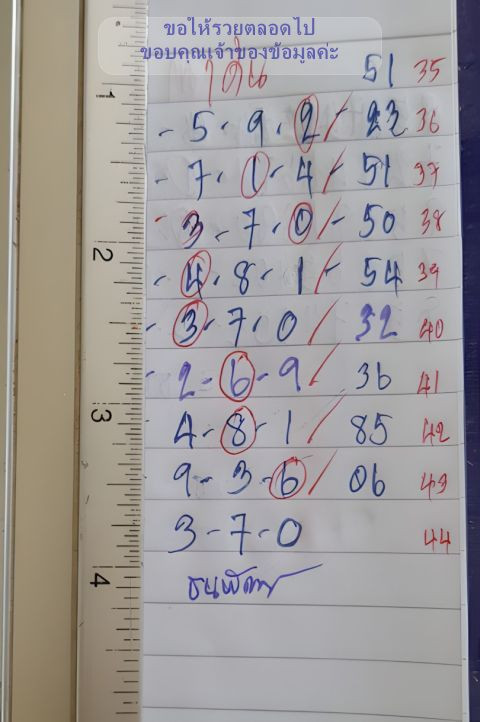 ขอให้รวยตลอดไป
ขอบคุณเจ้าของข้อมูลค่ะ
วิ่งบน 51 35
- 5 - 9 - 2 / 22 36
- 7 - 1 - 4 / - 51 37
- 3 - 7 - 0 / - 50 38
- 4 - 8 - 1 / - 54 39
- 3 - 7 - 0 / 32 40
- 2 - 6 - 9 / 36 41
4 - 8 - 1 / 85 42
9 - 3 - 6 / 06 43
3 - 7 - 0 44
1
2
3
4